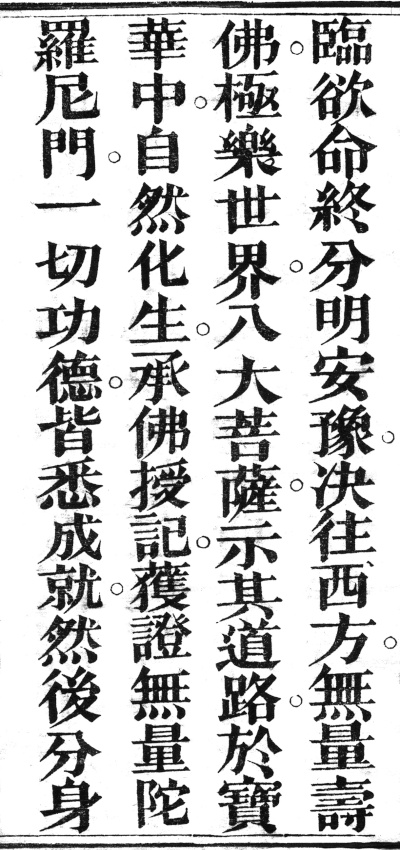 臨欲命終。分明安豫。決往西方。無量壽
佛。極樂世界。八大菩薩。示其道路。於寶
華中。自然化生。承佛授記。獲證無量陀
羅尼門。一切功德。皆悉成就。然後分身